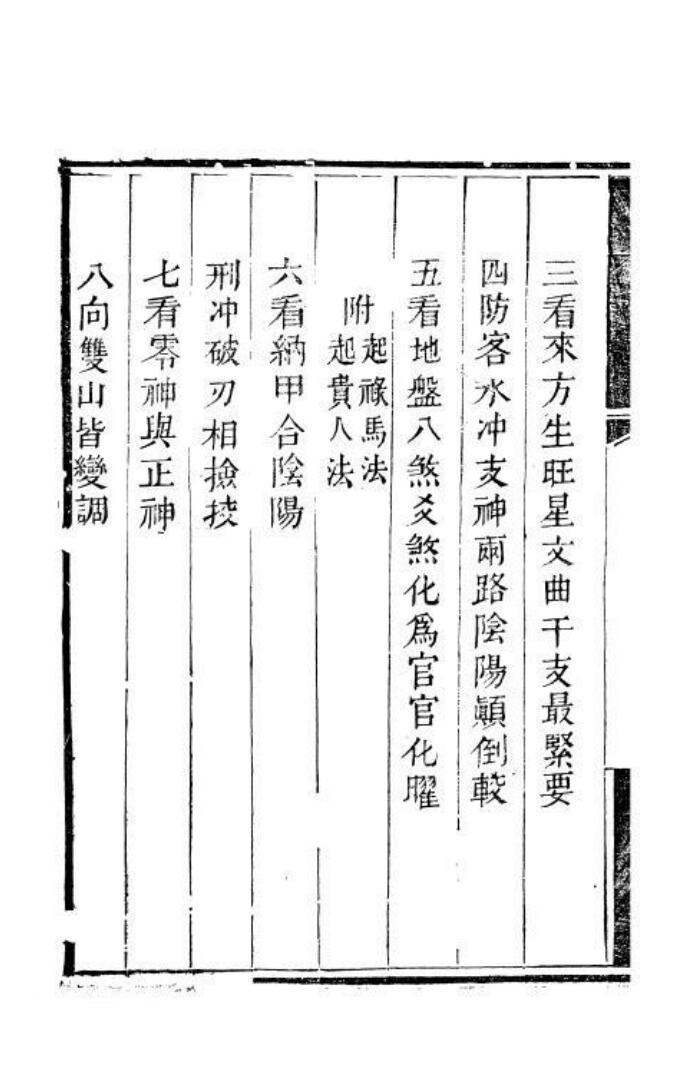 三看來方生旺星文曲干支最緊要
四防客水冲支神兩路陰陽顚倒較
五看地盤八煞爻煞化爲官官化曜
附
起祿馬法
起貴人法
六看納甲合陰陽
刑冲破刃相撿挍
七看零神與正神
八向雙山皆變調